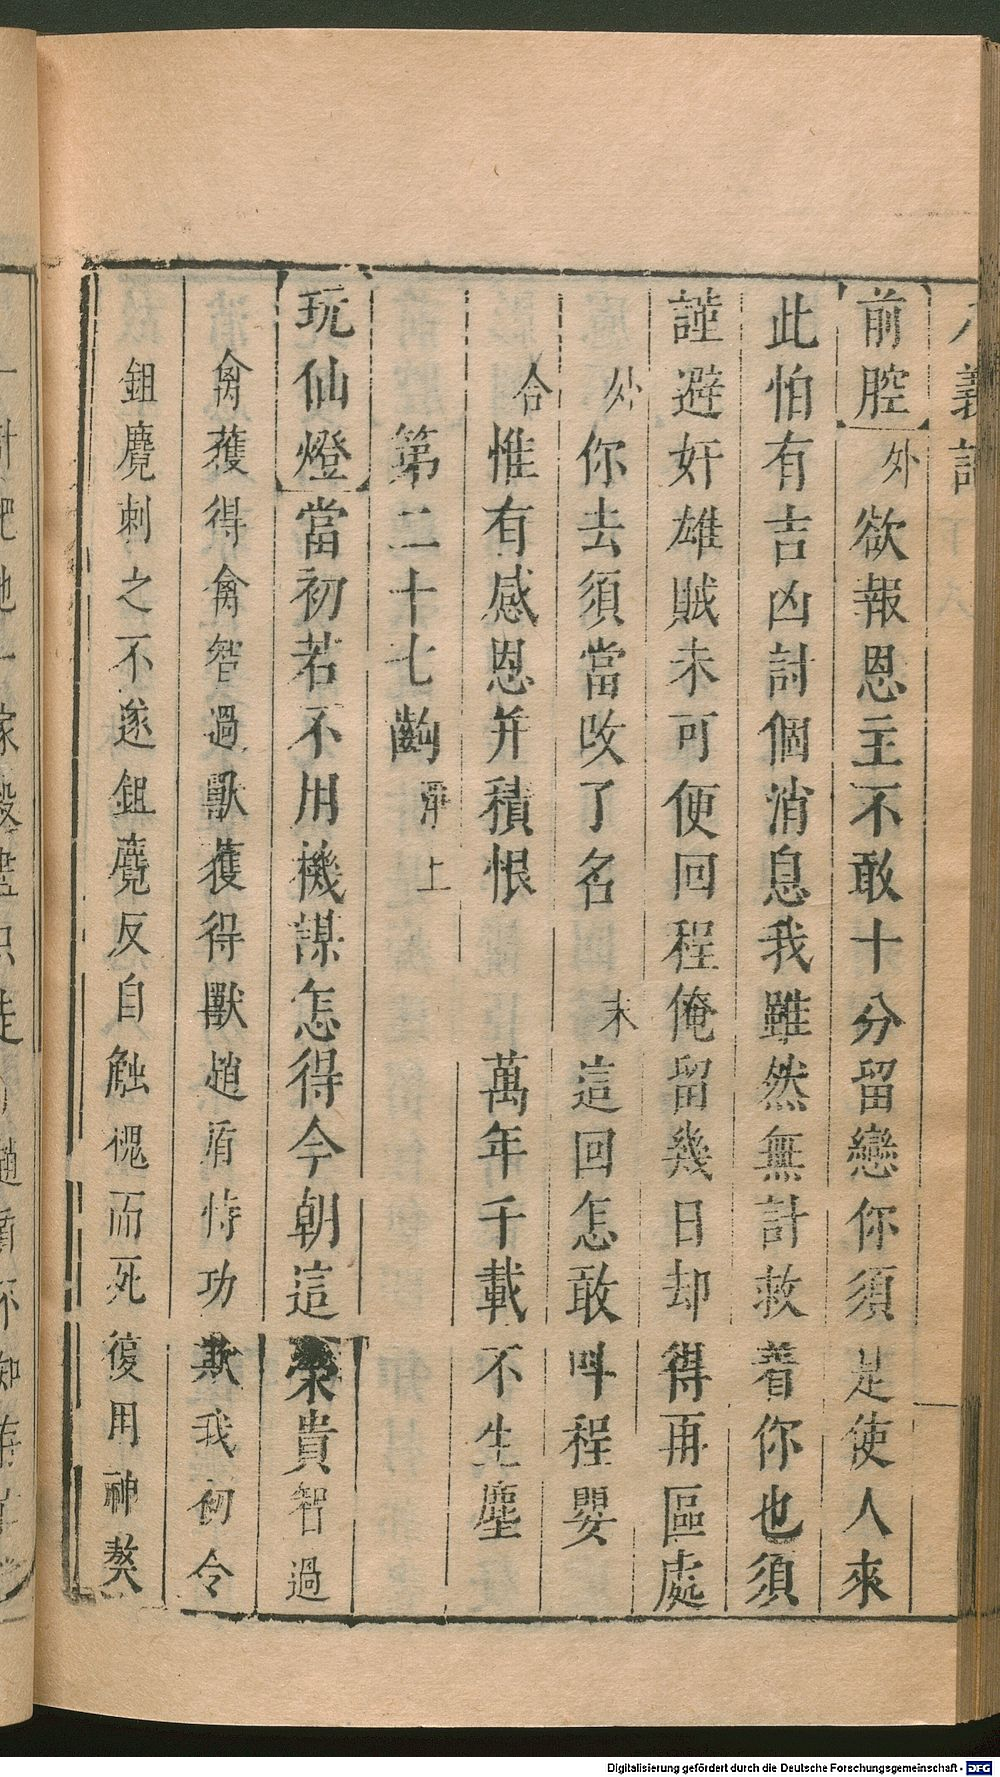 八義記
前腔 外 欲報恩主不敢十分留戀你須是使人來
此怕有吉凶討個消息我雖然無計救着你也須
謹避奸雄賊未可便回程俺留幾日却得再區處
外 你去須當改了名 末 這回怎敢呌程嬰
合 惟有感恩并積恨 萬年千載不生塵
第二十七齣 淨上
玩仙燈 當初若不用機謀怎得今朝這榮貴智過
禽獲得禽智過獸獲得獸趙盾恃功欺我初令
鉏麑刺之不遂鉏麑反自触槐而死復用神獒
Digitalisierung gefördert durch die Deutsche Forschungsgemeinschaft - DFG